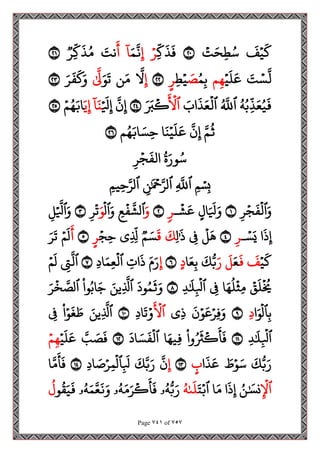 كَيْفَ سُطِحَتْ ٢٠ فَذَكِّرْ إِنَّمَآ أَنتَ مُذَكِّرٌ ٢١
لَّسْتَ عَلَيْهِم بِمُصَيْطِرٍ ٢٢ إِلَّا مَن تَوَلَّىٰ وَكَفَرَ ٢٣
فَيُعَذِّبُهُ ٱللَّهُ ٱلْعَذَابَ ٱلْأَكْبَرَ ٢٤ إِنَّ إِلَيْنَآ إِيَابَهُمْ ٢٥
ثُمَّ إِنَّ عَلَيْنَا حِسَابَهُم ٢٦
سُورَةُ الفَجْرِ
بِسْمِ ٱللَّهِ ٱلرَّحْمَٰنِ ٱلرَّحِيمِ
وَٱلْفَجْرِ ١ وَلَيَالٍ عَشْرٍ ٢ وَٱلشَّفْعِ وَٱلْوَتْرِ ٣ وَٱلَّيْلِ
إِذَا يَسْرِ ٤ هَلْ فِى ذَٰلِكَ قَسَمٌ لِّذِى حِجْرٍ ٥ أَلَمْ تَرَ
كَيْفَ فَعَلَ رَبُّكَ بِعَادٍ ٦ إِرَمَ ذَاتِ ٱلْعِمَادِ ٧ ٱلَّتِى لَمْ
يُخْلَقْ مِثْلُهَا فِى ٱلْبِلَٰدِ ٨ وَثَمُودَ ٱلَّذِينَ جَابُوا۟ ٱلصَّخْرَ
بِٱلْوَادِ ٩ وَفِرْعَوْنَ ذِى ٱلْأَوْتَادِ ١٠ ٱلَّذِينَ طَغَوْا۟ فِى
ٱلْبِلَٰدِ ١١ فَأَكْثَرُوا۟ فِيهَا ٱلْفَسَادَ ١٢ فَصَبَّ عَلَيْهِمْ
رَبُّكَ سَوْطَ عَذَابٍ ١٣ إِنَّ رَبَّكَ لَبِٱلْمِرْصَادِ ١٤ فَأَمَّا
ٱلْإِنسَٰنُ إِذَا مَا ٱبْتَلَىٰهُ رَبُّهُۥ فَأَكْرَمَهُۥ وَنَعَّمَهُۥ فَيَقُولُ
Page ٧٤١ of ٧٥٧